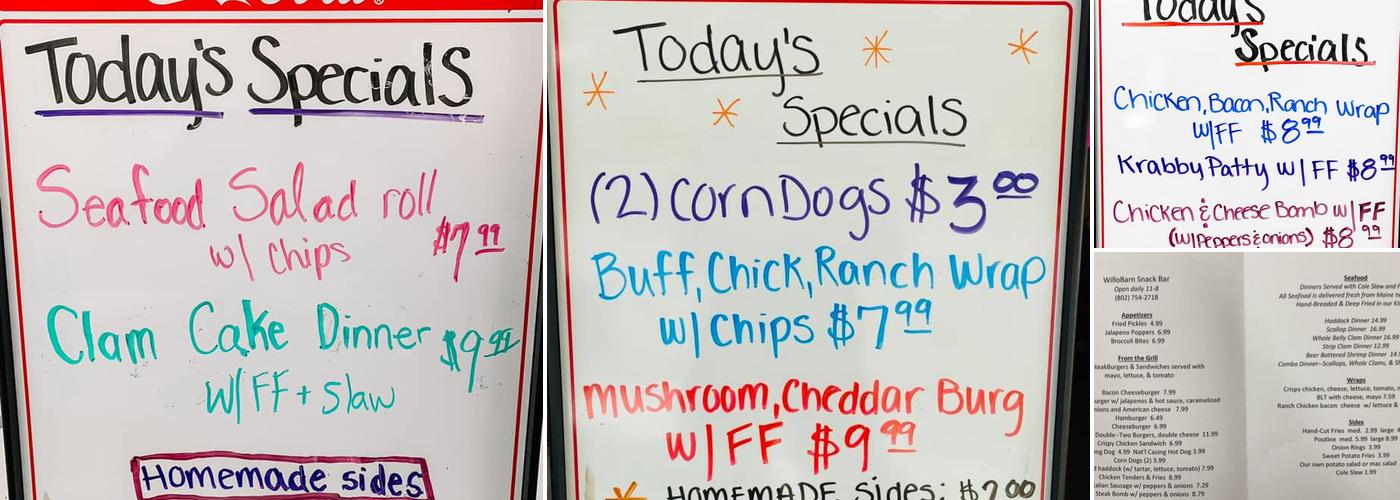 Today's Specials
Seafood Salad roll
w/ Chips $7.99
Clam Cake Dinner $9.99
W/ FF + Slaw
Homemade sides
Today's
Specials
(2) Corn Dogs $3.00
Buff, Chick, Ranch Wrap
w/ Chips $7.99
mushroom, Cheddar Burg
w/ FF $9.99
HOMEMADE Sides: $2.00
Today's
Specials
Chicken, Bacon, Ranch Wrap
W/FF $8.99
Krabby Patty w/ FF $8.99
Chicken & Cheese Bomb w/ FF
(w/Peppers & onions) $8.99
WilloBarn Snack Bar
Open daily 11-8
(802) 754-2718
Appetizers
Fried Pickles 4.99
Jalapeno Poppers 6.99
Broccoli Bites 6.99
From the Grill
SteakBurgers & Sandwiches served with
mayo, lettuce, & tomato
Bacon Cheeseburger 7.99
urger w/ jalapenos & hot sauce, caramelized
nions and American cheese 7.99
Hamburger 6.49
Cheeseburger 6.99
Double--Two Burgers, double cheese 11.99
Crispy Chicken Sandwich 6.99
ong Dog 4.99 Nat'l Casing Hot Dog 3.99
Corn Dogs (2) 3.99
d haddock (w/ tartar, lettuce, tomato) 7.99
Chicken Tenders & Fries 8.99
Italian Sausage w/ peppers & onions 7.29
Steak Bomb w/ peppers & onions 8.79
Seafood
Dinners Served with Cole Slaw and F
All Seafood is delivered fresh from Maine t
Hand-Breaded & Deep Fried in our Ki
Haddock Dinner 14.99
Scallop Dinner 16.99
Whole Belly Clam Dinner 16.99
Strip Clam Dinner 12.99
Beer Battered Shrimp Dinner 14.
Combo Dinner--Scallops, Whole Clams, & S
Wraps
Crispy chicken, cheese, lettuce, tomato, m
BLT with cheese, mayo 7.59
Ranch Chicken bacon cheese w/ lettuce &
Sides
Hand-Cut Fries med. 2.99 large 4
Poutine med. 5.99 large 8.99
Onion Rings 3.99
Sweet Potato Fries 3.99
Our own potato salad or mac salad
Cole Slaw 1.99